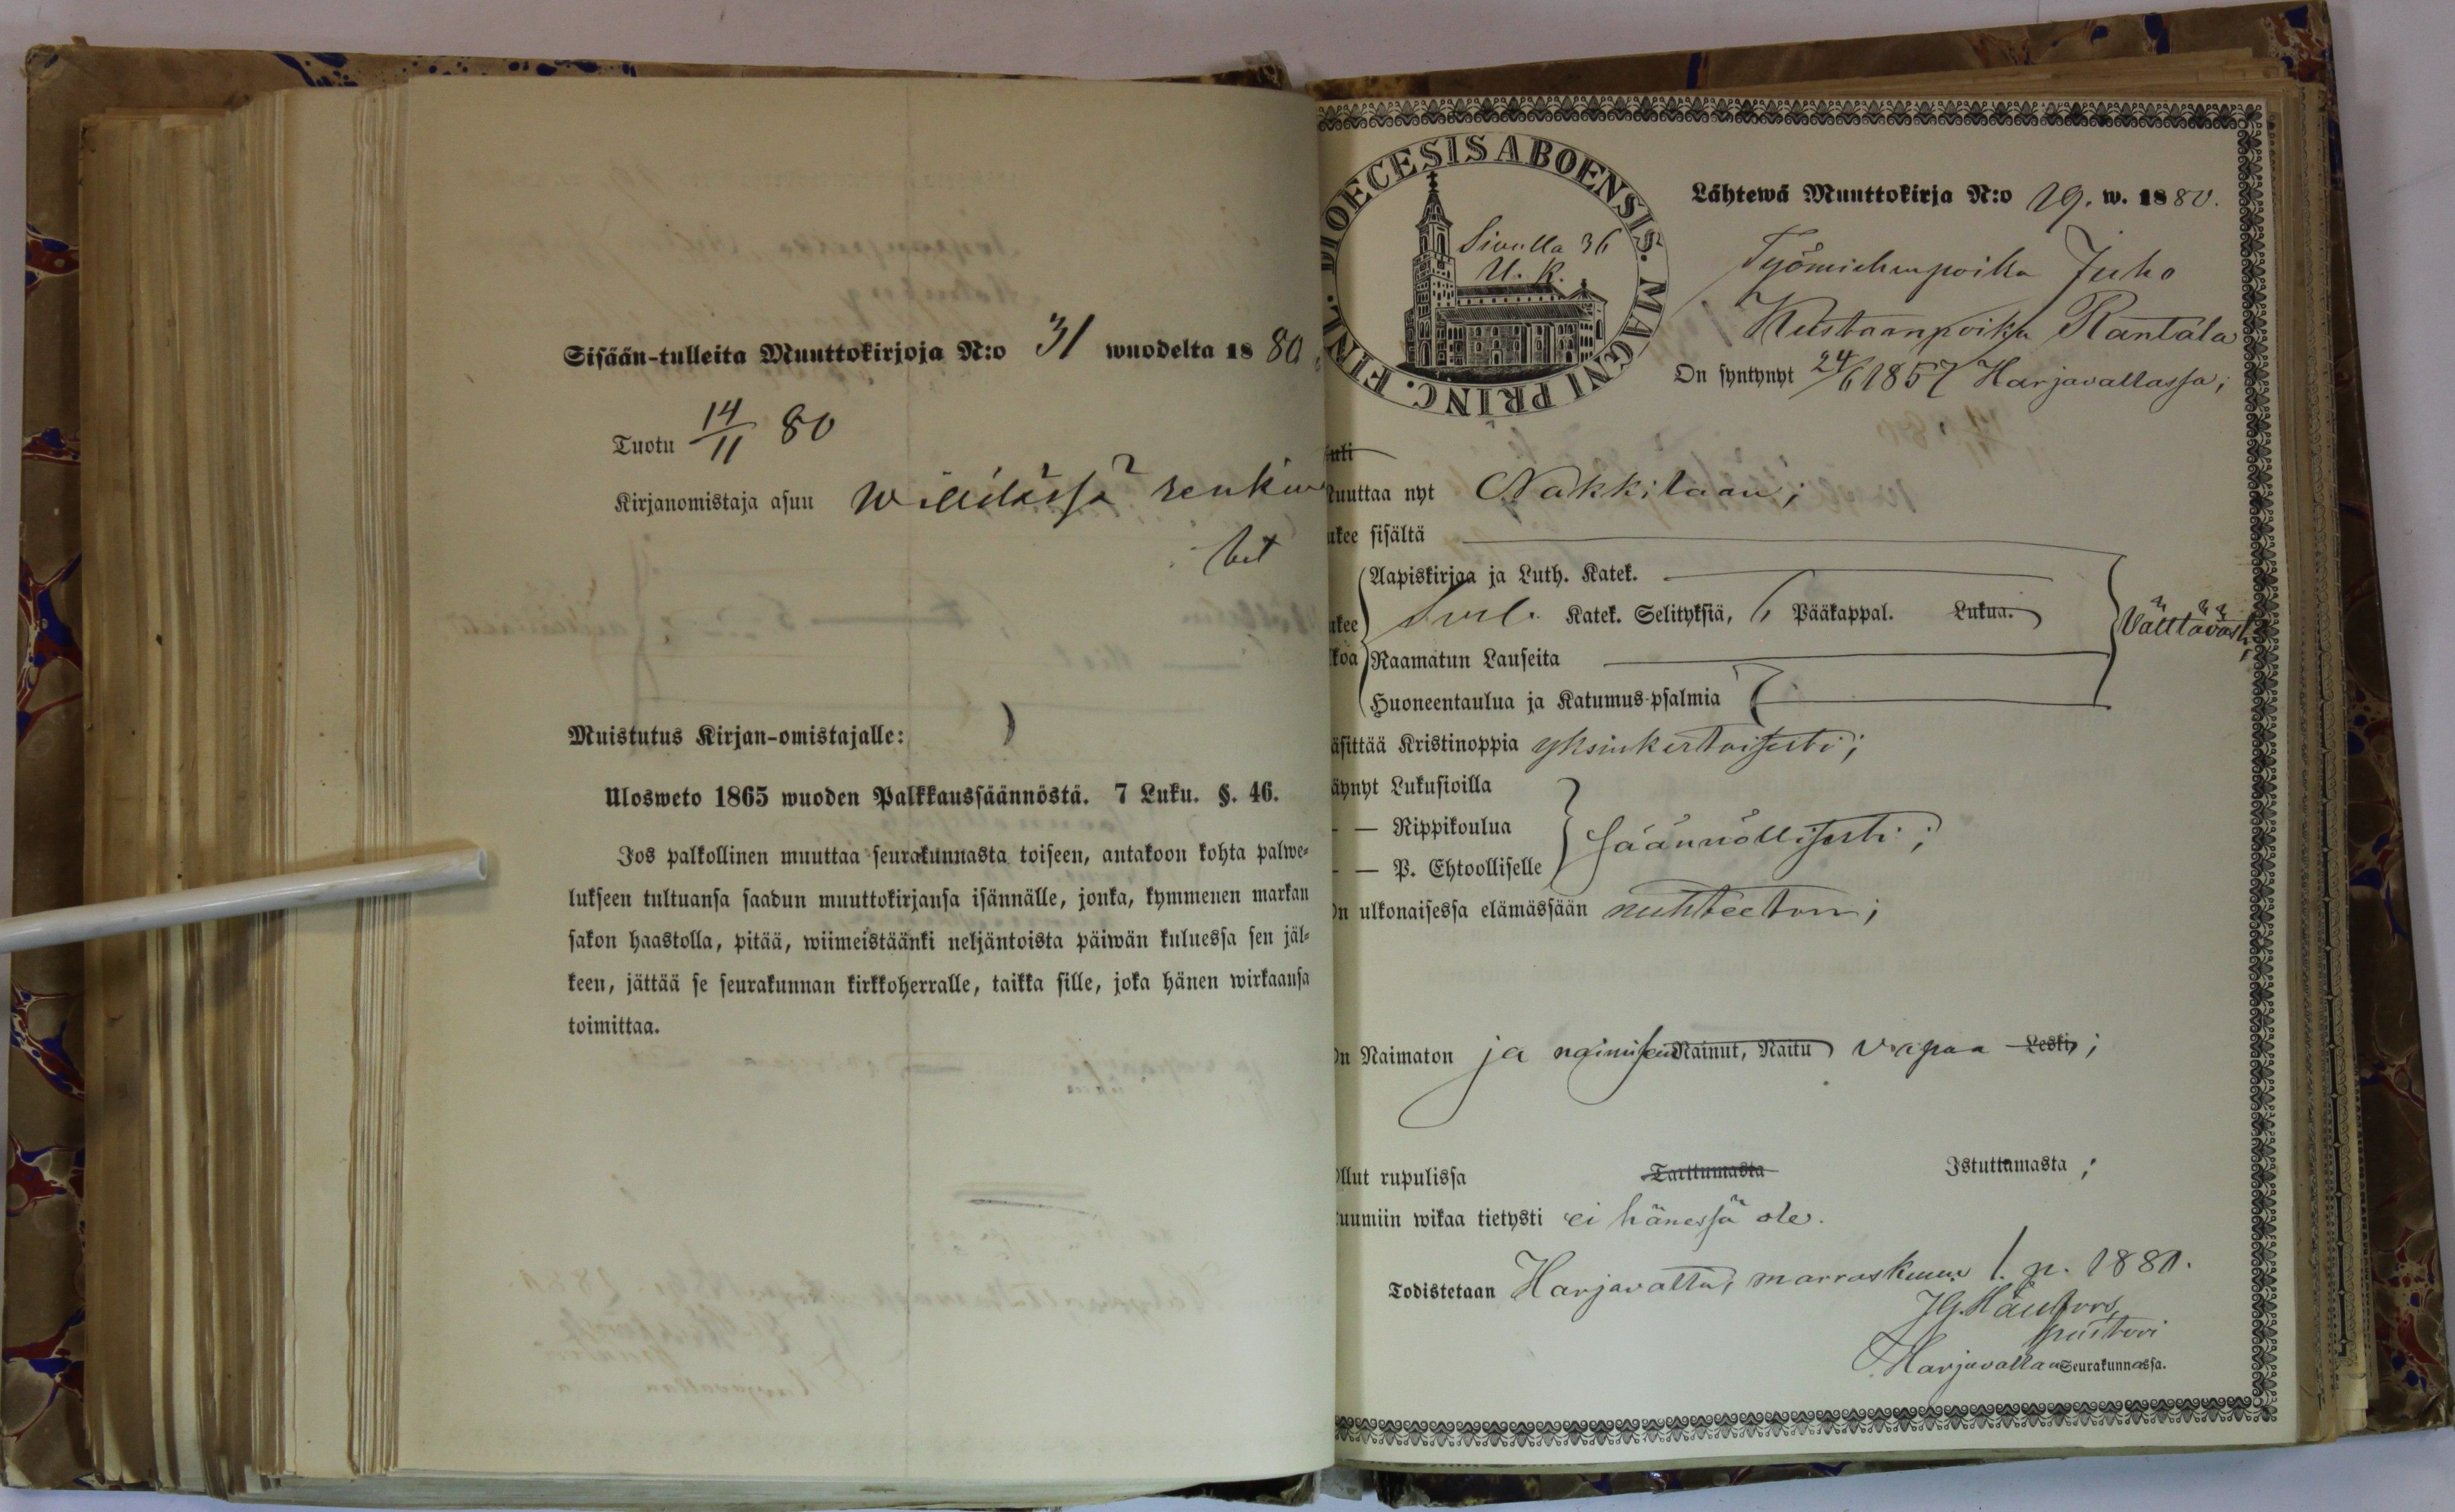 Sisään-tulleita Muuttokirjoja N:o 31 wuodelta 1880
Tuotu 14/11 80
Kirjanomistaja asuu Willilässä renkin
Muistutus Kirjan-omistajalle:
Ulosweto 1865 wuoden Palkkaussäännöstä. 7 Luku. §. 46.
Jos palkollinen muuttaa seurakunnasta toiseen, antakoon kohta palwe-
lukseen tultuansa saadun muuttokirjansa isännälle, jonka, kymmenen markan
sakon haastolla, pitää, wiimeistäänki neljäntoista päiwän kuluessa sen jäl-
keen, jättää se seurakunnan kirkkoherralle, taikka sille, joka hänen wirkaansa
toimittaa.
DIOECESIS ABOENSIS. MAGNI PRINC. FINL.
Sivulla 36
U. K.
Lähtewä Muuttokirja N:o 19. w. 1880.
Työmiehenpoika Juho
Kustaanpoika Rantala
On syntynyt 24/6 1857 Harjavallassa;
uli
uuttaa nyt Nakkilaan;
ukee sisältä
Aapiskirjaa ja Luth. Katek.
ukee Katek. Selityksiä, Pääkappal. Lukua. Välttävästi;
koa Raamatun Lauseita
Huoneentaulua ja Katumus-psalmia
äsittää Kristinoppia yksinkertaisesti;
äynyt Lukusioilla
— Rippikoulua säännöllisesti;
— P. Ehtoolliselle
On ulkonaisessa elämässään nuhteeton;
On Naimaton ja naimiseen Nainut, Naitu vapaa Leski;
Ollut rupulissa Tarttumasta Istuttamasta;
uumiin wikaa tietysti ei hänessä ole.
Todistetaan Harjavalta, marraskuun 1. p. 1880.
pastori
Harjavallan Seurakunnassa.